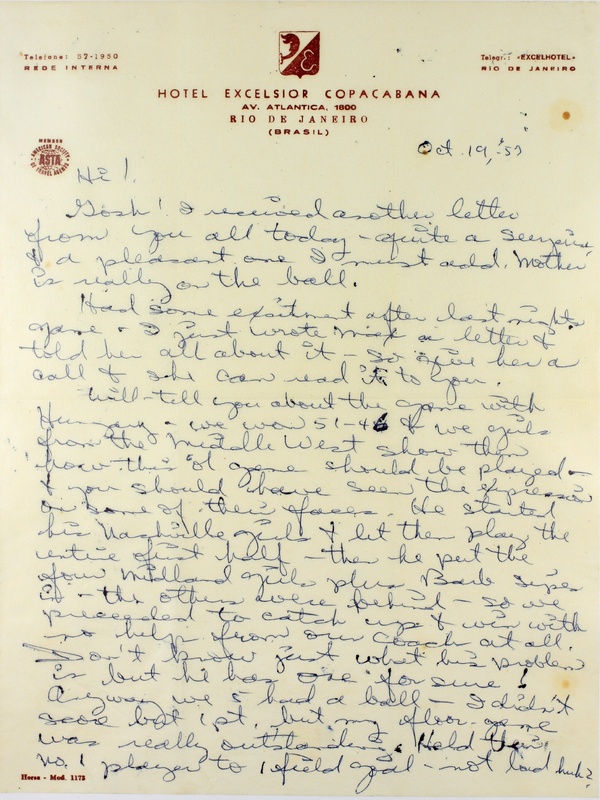 Telefone: 57-1950
REDE INTERNA
Telegr.: «EXCELHOTEL»
RIO DE JANEIRO
HOTEL EXCELSIOR COPACABANA
AV. ATLANTICA, 1800
RIO DE JANEIRO
(BRASIL)
MEMBER
AMERICAN SOCIETY
ASTA
OF TRAVEL AGENTS
Oct. 19, '57
Hi!
Gosh! I received another letter
from you all today - quite a surprise
& a pleasant one I must add. Mother
is really on the ball.
Had some excitment after last night's
game & I just wrote a letter &
told her all about it - so give her a
call & she can read it to you.
Will tell you about the game with
Hungary - we won 51-46 & we girls
from the Middle West show them
how this ol game should be played -
& you should have seen the expression
on some of their faces. He started
his Nashville girls & let them play the
entire first half - then he put the
four Midland girls plus Barb Sipes
in - the others were behind - so we
preceeded to catch up & win with
no help from our coach at all.
Don't know just what his problem
is but he has one for sure!
Anyway we 5 had a ball - I didn't
score but 1 pt. but my floor game
was really outstanding. Held their
no. 1 player to 1 field goal - not bad huh?
Horsa - Mod. 1173